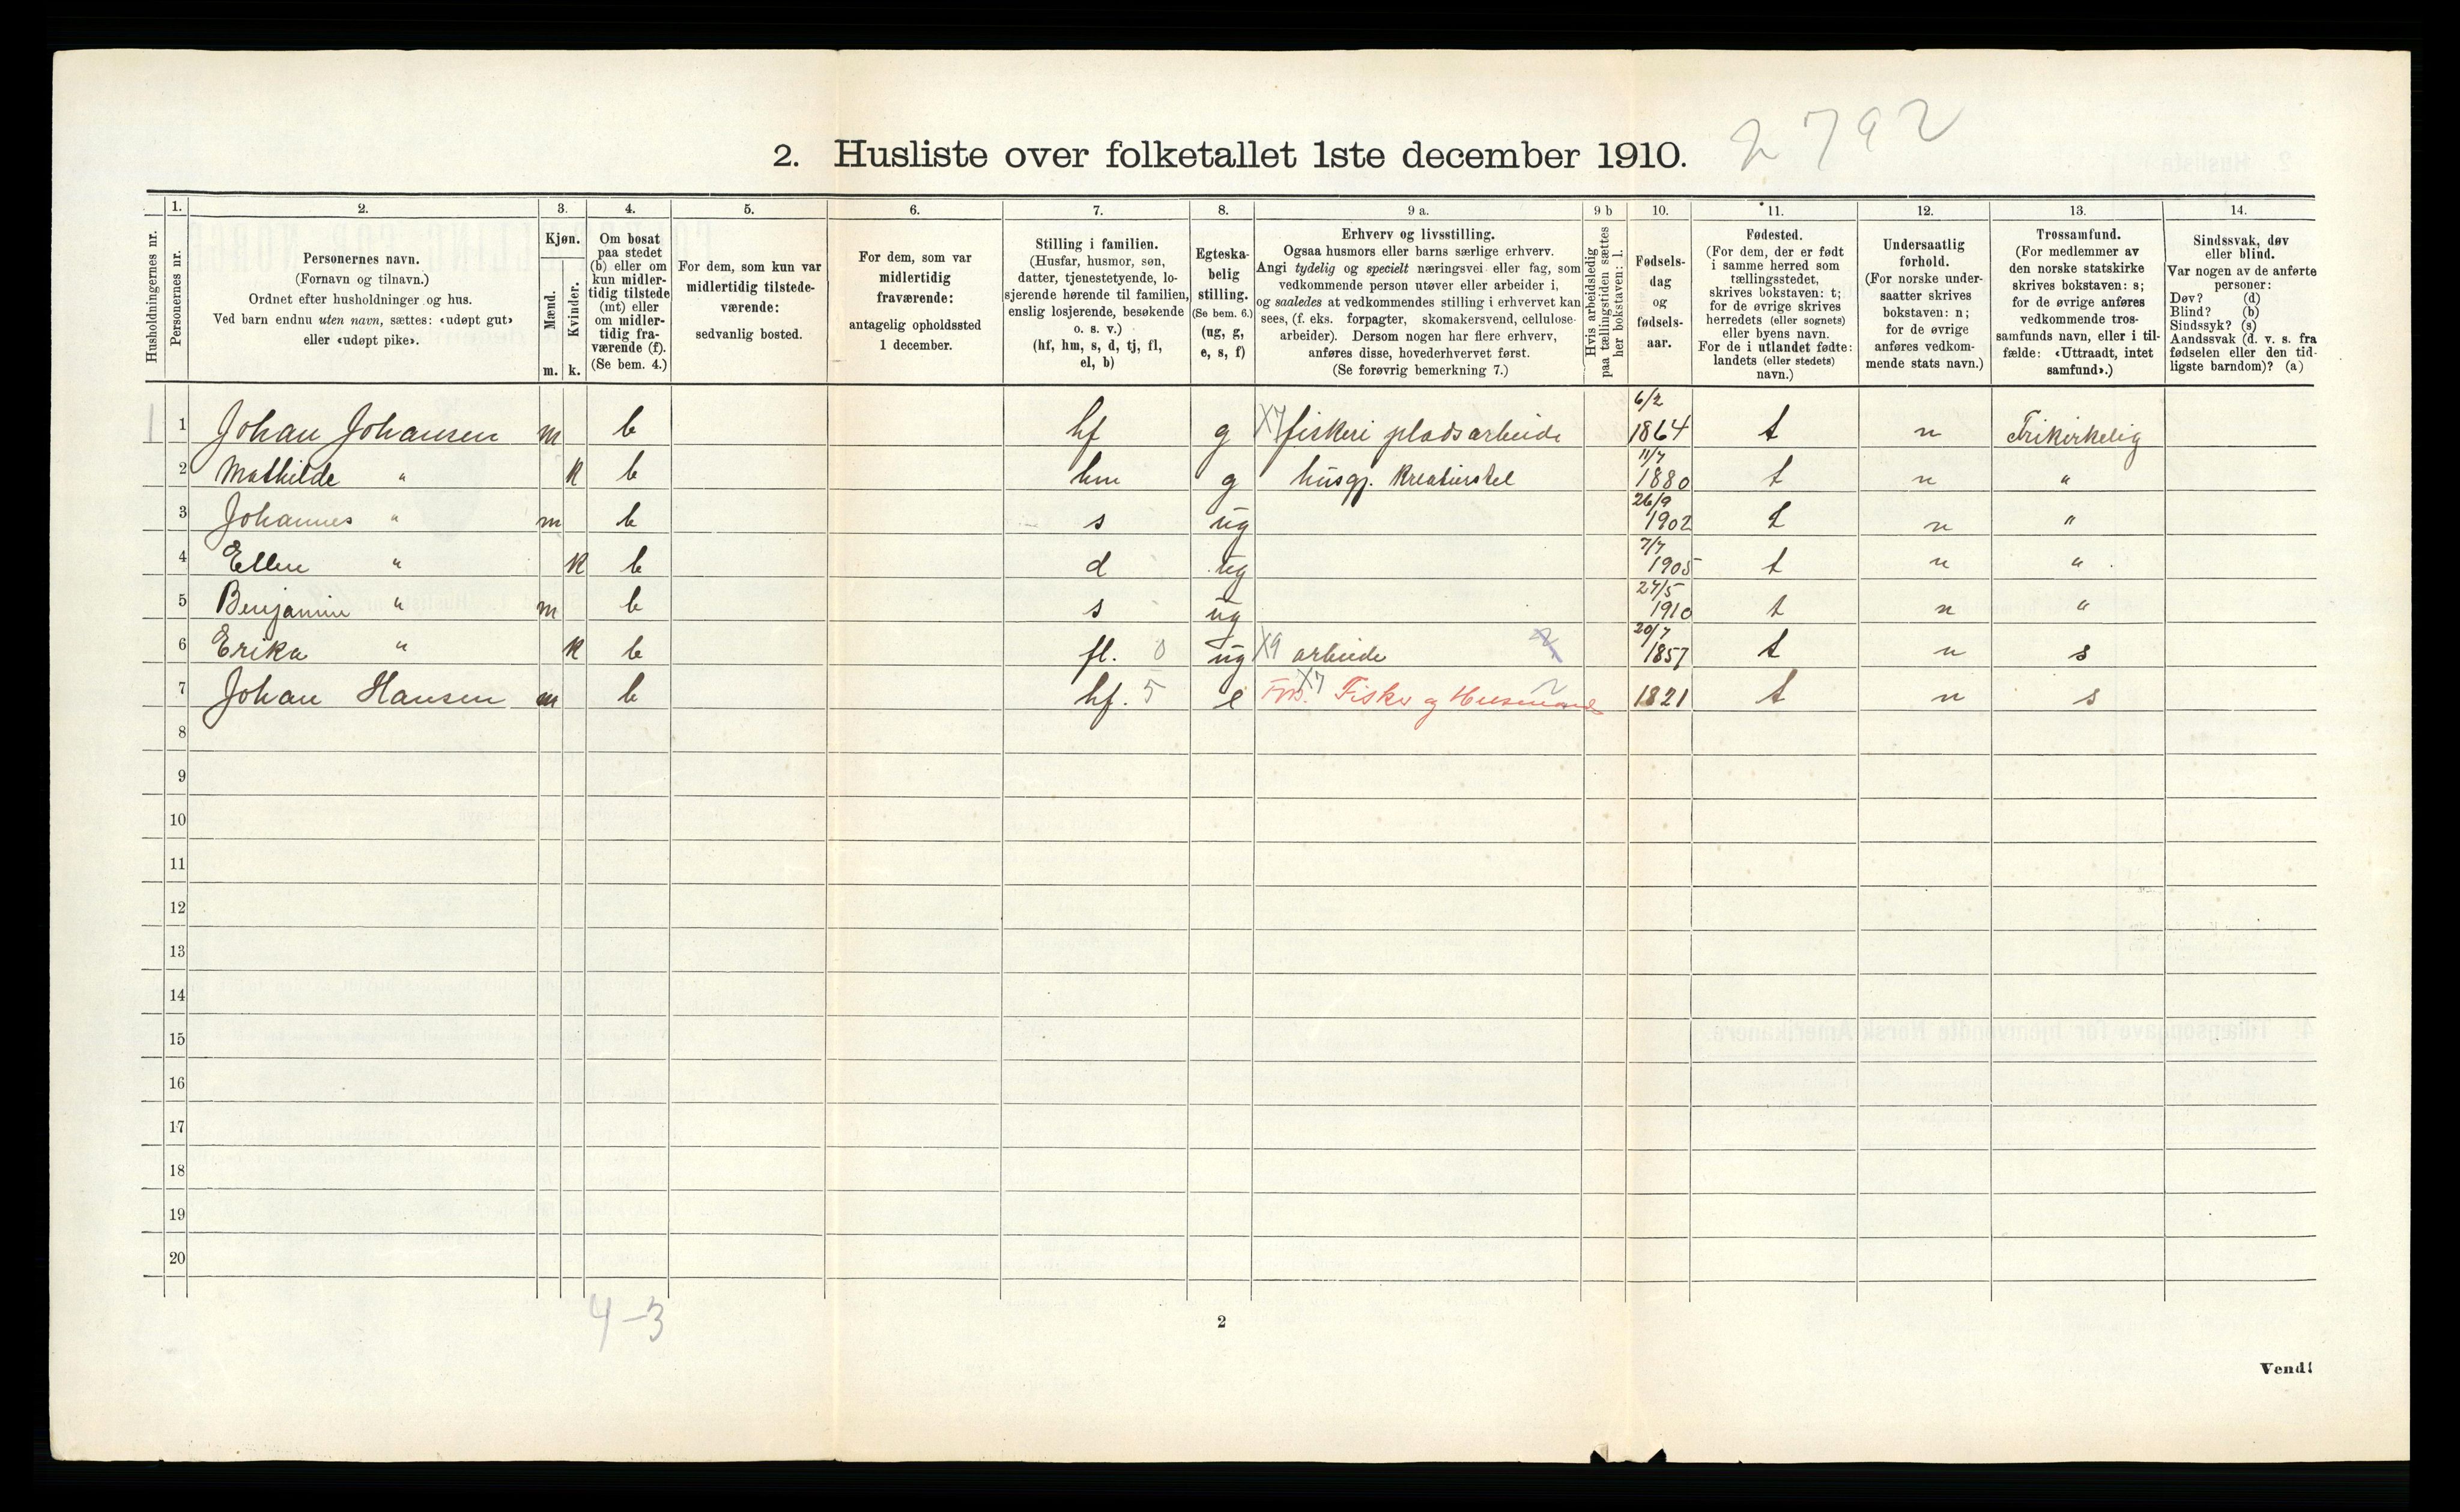 2792
2. Husliste over folketallet 1ste december 1910.
Husholdningernes nr.
1.
Personernes nr.
2.
Personernes navn.
(Fornavn og tilnavn.)
Ordnet efter husholdninger og hus.
Ved barn endnu uten navn, sættes: «udøpt gut»
eller «udøpt pike».
3.
Kjøn.
Mænd.
Kvinder.
m. k.
4.
Om bosat
paa stedet
(b) eller om
kun midler-
tidig tilstede
(mt) eller
om midler-
tidig fra-
værende (f).
(Se bem. 4.)
5.
For dem, som kun var
midlertidig tilstede-
værende:
sedvanlig bosted.
6.
For dem, som var
midlertidig
fraværende:
antagelig opholdssted
1 december.
7.
Stilling i familien.
(Husfar, husmor, søn,
datter, tjenestetyende, lo-
sjerende hørende til familien,
enslig losjerende, besøkende
o. s. v.)
(hf, hm, s, d, tj, fl,
el, b)
8.
Egteska-
belig
stilling.
(Se bem. 6.)
(ug, g,
e, s, f)
9 a.
Erhverv og livsstilling.
Ogsaa husmors eller barns særlige erhverv.
Angi tydelig og specielt næringsvei eller fag, som
vedkommende person utøver eller arbeider i,
og saaledes at vedkommendes stilling i erhvervet kan
sees, (f. eks. forpagter, skomakersvend, cellulose-
arbeider). Dersom nogen har flere erhverv,
anføres disse, hovederhvervet først.
(Se forøvrig bemerkning 7.)
9 b
Hvis arbeidsledig
paa tællingstiden sættes
her bokstaven: l.
10.
Fødsels-
dag
og
fødsels-
aar.
11.
Fødested.
(For dem, der er født
i samme herred som
tællingsstedet,
skrives bokstaven: t;
for de øvrige skrives
herredets (eller sognets)
eller byens navn.
For de i utlandet fødte:
landets (eller stedets)
navn.)
12.
Undersaatlig
forhold.
(For norske under-
saatter skrives
bokstaven: n;
for de øvrige
anføres vedkom-
mende stats navn.)
13.
Trossamfund.
(For medlemmer av
den norske statskirke
skrives bokstaven: s;
for de øvrige anføres
vedkommende tros-
samfunds navn, eller i til-
fælde: «Uttraadt, intet
samfund».)
14.
Sindssvak, døv
eller blind.
Var nogen av de anførte
personer:
Døv? (d)
Blind? (b)
Sindssyk? (s)
Aandssvak (d. v. s. fra
fødselen eller den tid-
ligste barndom)? (a)
1 1 Johan Johansen m b hf g X7 fiskeri pladsarbeide 6/2 1864 t n Frikirkelig
2 Mathilde " k b hm g husgj. Kreaturstel 11/7 1880 t n "
3 Johannes " m b s ug 26/9 1902 t n "
4 Ellen " k b d ug 7/7 1905 t n "
5 Benjamin " m b s ug 27/5 1910 t n "
6 Erika " k b fl. 0 ug X9 arbeide 20/7 1857 t n s
7 Johan Hansen m b hf. 5 e X7 Fisker og Husmand 1821 t n s
8
9
10
11
12
13
14
15
16
17
18
19
20
4-3
2
Vend!